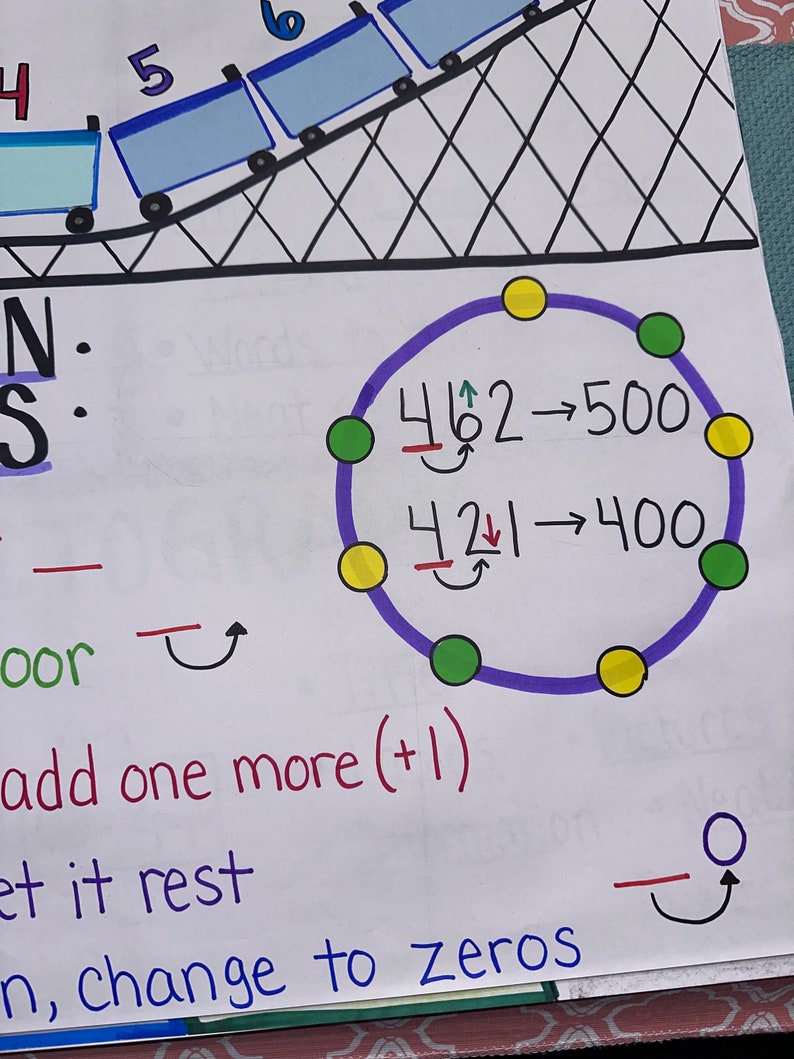 4 5 6
N.
S.
462 → 500
421 → 400
oor
add one more (+1)
et it rest
0
n, change to zeros